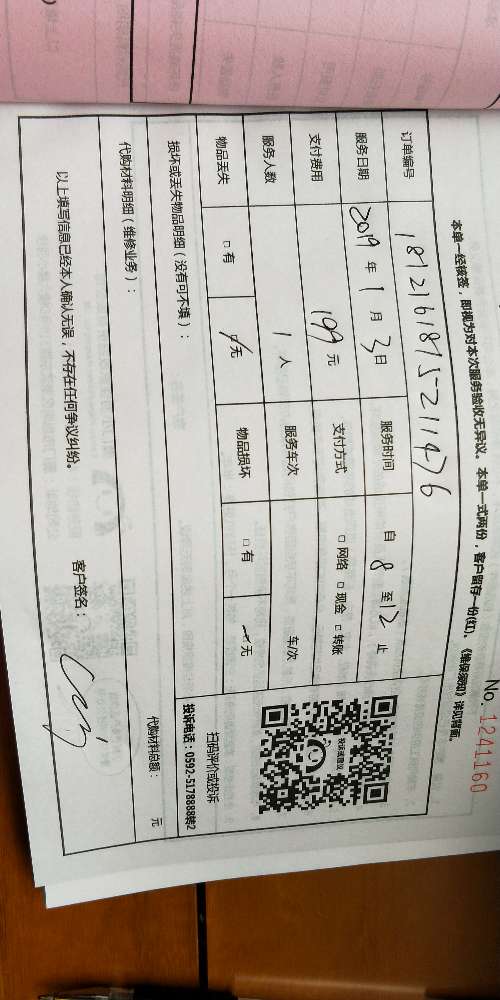 No. 1241160
本单一经核签，即视为对本次服务验收无异议。本单一式两份，客户留存一份(红)。《维保须知》详见背面。
订单编号 1812161875211476
服务日期 2019 年 1 月 3 日 服务时间 自 8 至 12 止
支付费用 199 元 支付方式 □ 网络 □ 现金 □ 转账
服务人数 1 人 服务车次 车/次
物品丢失 □ 有 □ 无 物品损坏 □ 有 无
投诉或建议
扫码评价或投诉
投诉电话：0592-5178888转2
损坏或丢失物品明细（没有可不填）：
代购材料明细（维修业务）：
代购材料总额： 元
以上填写信息已经本人确认无误，不存在任何争议纠纷。
客户签名：